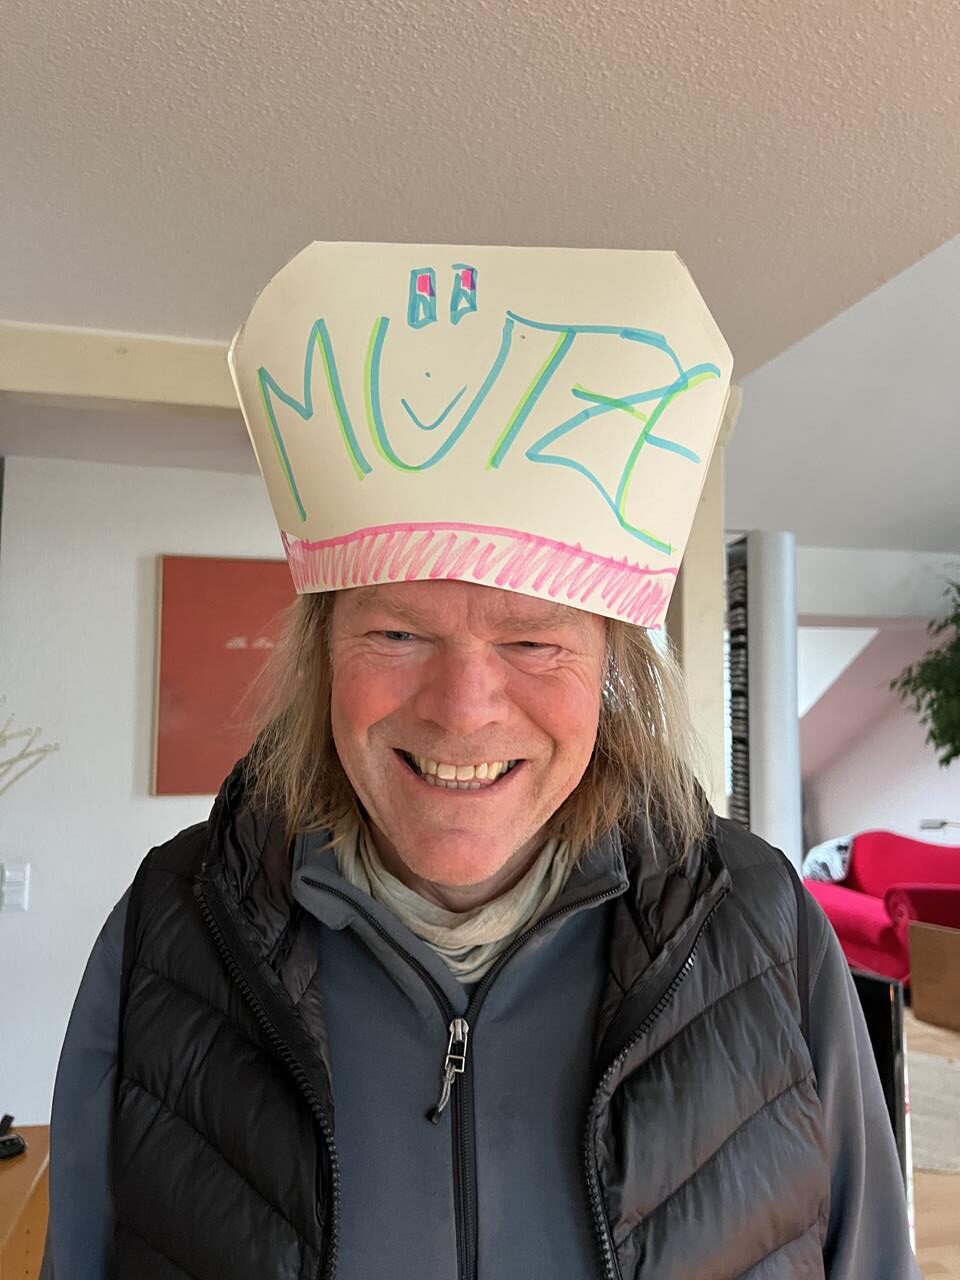 MÜTZE